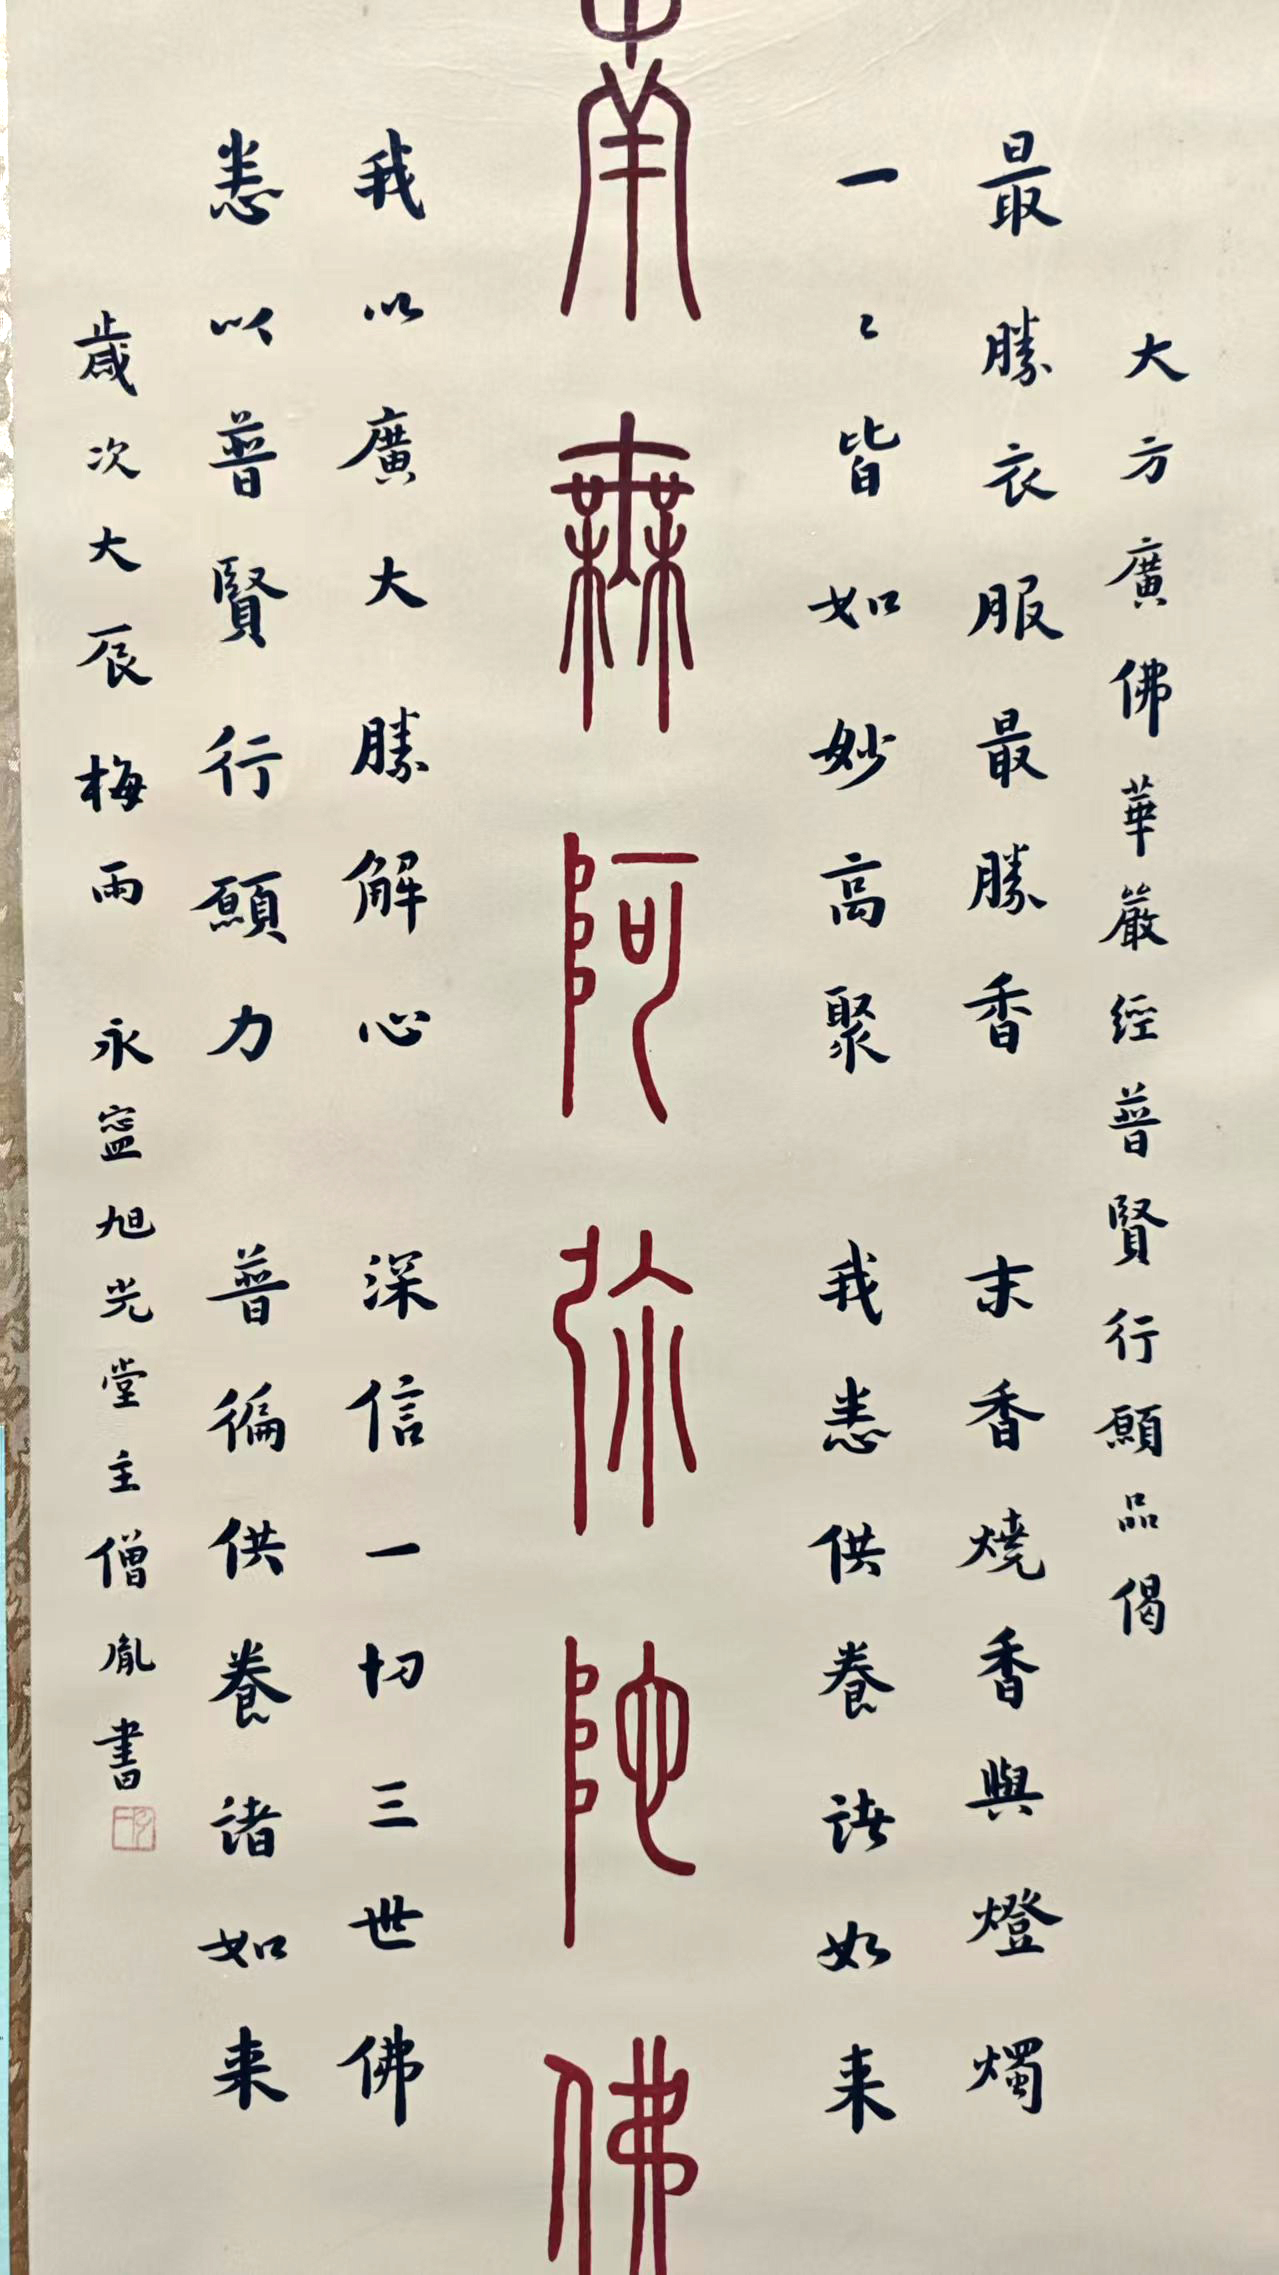 大方廣佛華嚴經普賢行願品偈
最勝衣服最勝香 末香燒香與燈燭
一〻皆如妙高聚 我悉供養諸如来
南無阿弥陀佛
我以廣大勝解心 深信一切三世佛
悉以普賢行願力 普徧供養諸如来
歲次大辰梅雨 永寍旭光堂主僧胤書